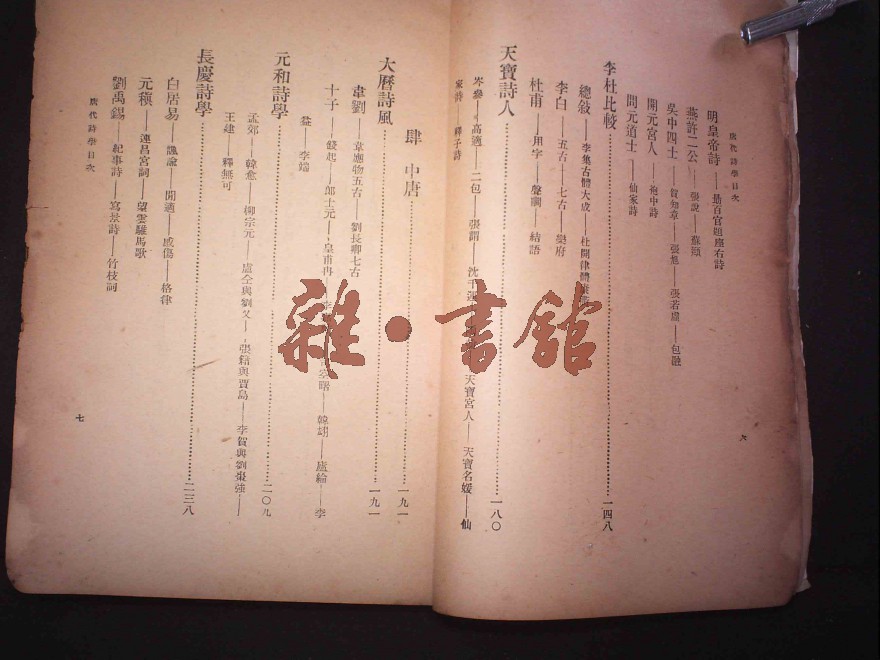 唐代詩學目次
明皇帝詩——是百官題座右詩
燕許二公——張說——蘇頲
吳中四士——賀知章——張旭——張若虛——包融
開元宮人——袍中詩
開元道士——仙家詩
李杜比較……一四八
總敍——李集古體大成——杜開律體
李白——五古——七古——樂府
杜甫——用字——聲調——結語
天寶詩人……一八〇
岑參——高適——二包——張謂——沈千運 天寶宮人——天寶名媛——仙
家詩——釋子詩
六
肆 中唐……一九一
大曆詩風……一九一
韋劉——韋應物五古——劉長卿七古
十子——錢起——郎士元——皇甫冉——李 曙——韓翃——盧綸——李
益——李端
元和詩學……二〇九
孟郊——韓愈——柳宗元——盧仝與劉叉——張籍與賈島——李賀與劉棗強——
王建——釋無可
長慶詩學……二三八
白居易——諷諭——閒適——感傷——格律
元稹——連昌宮詞——望雲騅馬歌
劉禹錫——紀事詩——寫景詩——竹枝詞
唐代詩學目次
七
雜·書館